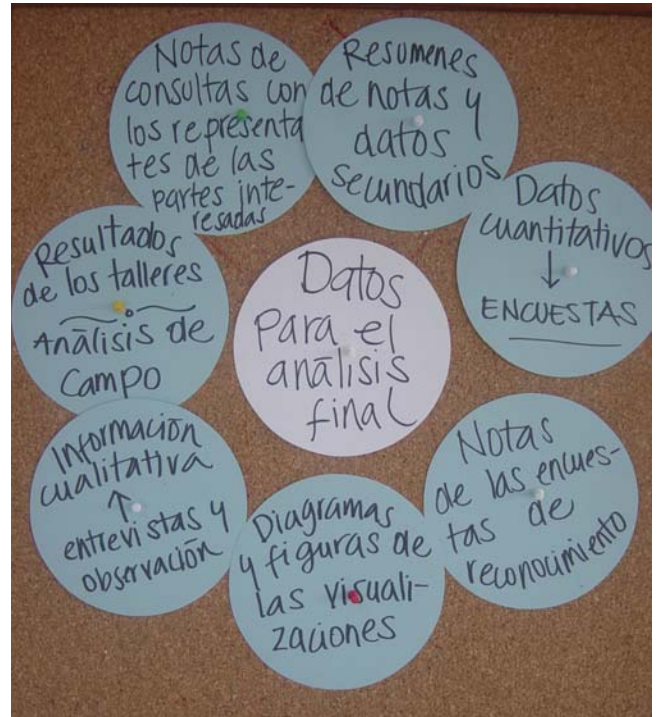 Notas de
consultas con
los representa
tes de las
partes inte-
resadas
Resumenes
de notas y
datos
secundarios
Datos
cuantitativos
↓
ENCUESTAS
Resultados
de los talleres
Análisis de
Campo
Datos
para el
análisis
final
Información
cualitativa
↑
entrevistas y
observación
Diagramas
y figuras de
las visuali-
zaciones
Notas
de las encues-
tas de
reconocimiento